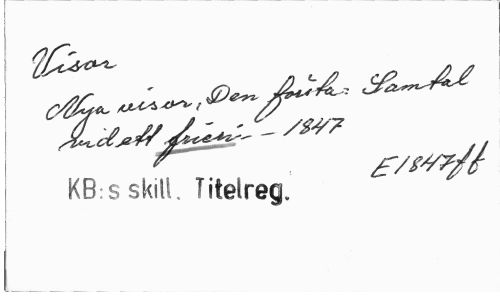 Visor
Nya visor, Den första: Samtal
vid ett frieri - - 1847
E1847ff
KB:s skill. Titelreg.